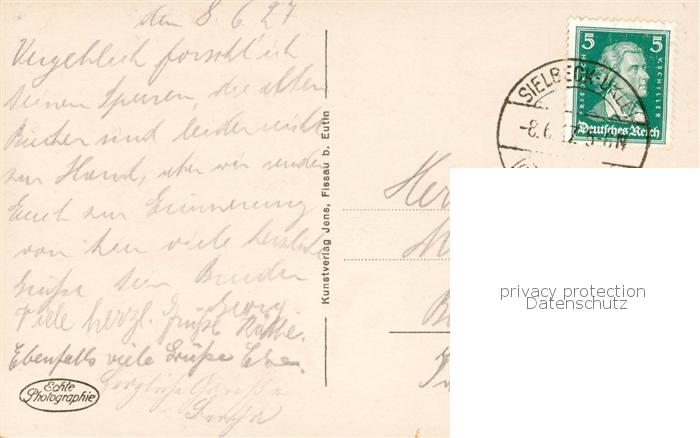 den 8.6.27
Vergeblich forscht' ich
Deinen Spuren, die alten
Bücher sind leider nicht
zur Hand, aber wir senden
Euch zur Erinnerung
von hier viele herzliche
Grüße Dein Bruder
Georg.
Viele herzl. Grüße Käthe.
Ebenfalls viele Grüße
Herzliche Grüße
Echte
Photographie
Kunstverlag Jens, Fissau b. Eutin
5 5
FRIEDRICH
V. SCHILLER
Deutsches Reich
SIELBECK-UKLEI
-8.6.
Her
privacy protection
Datenschutz